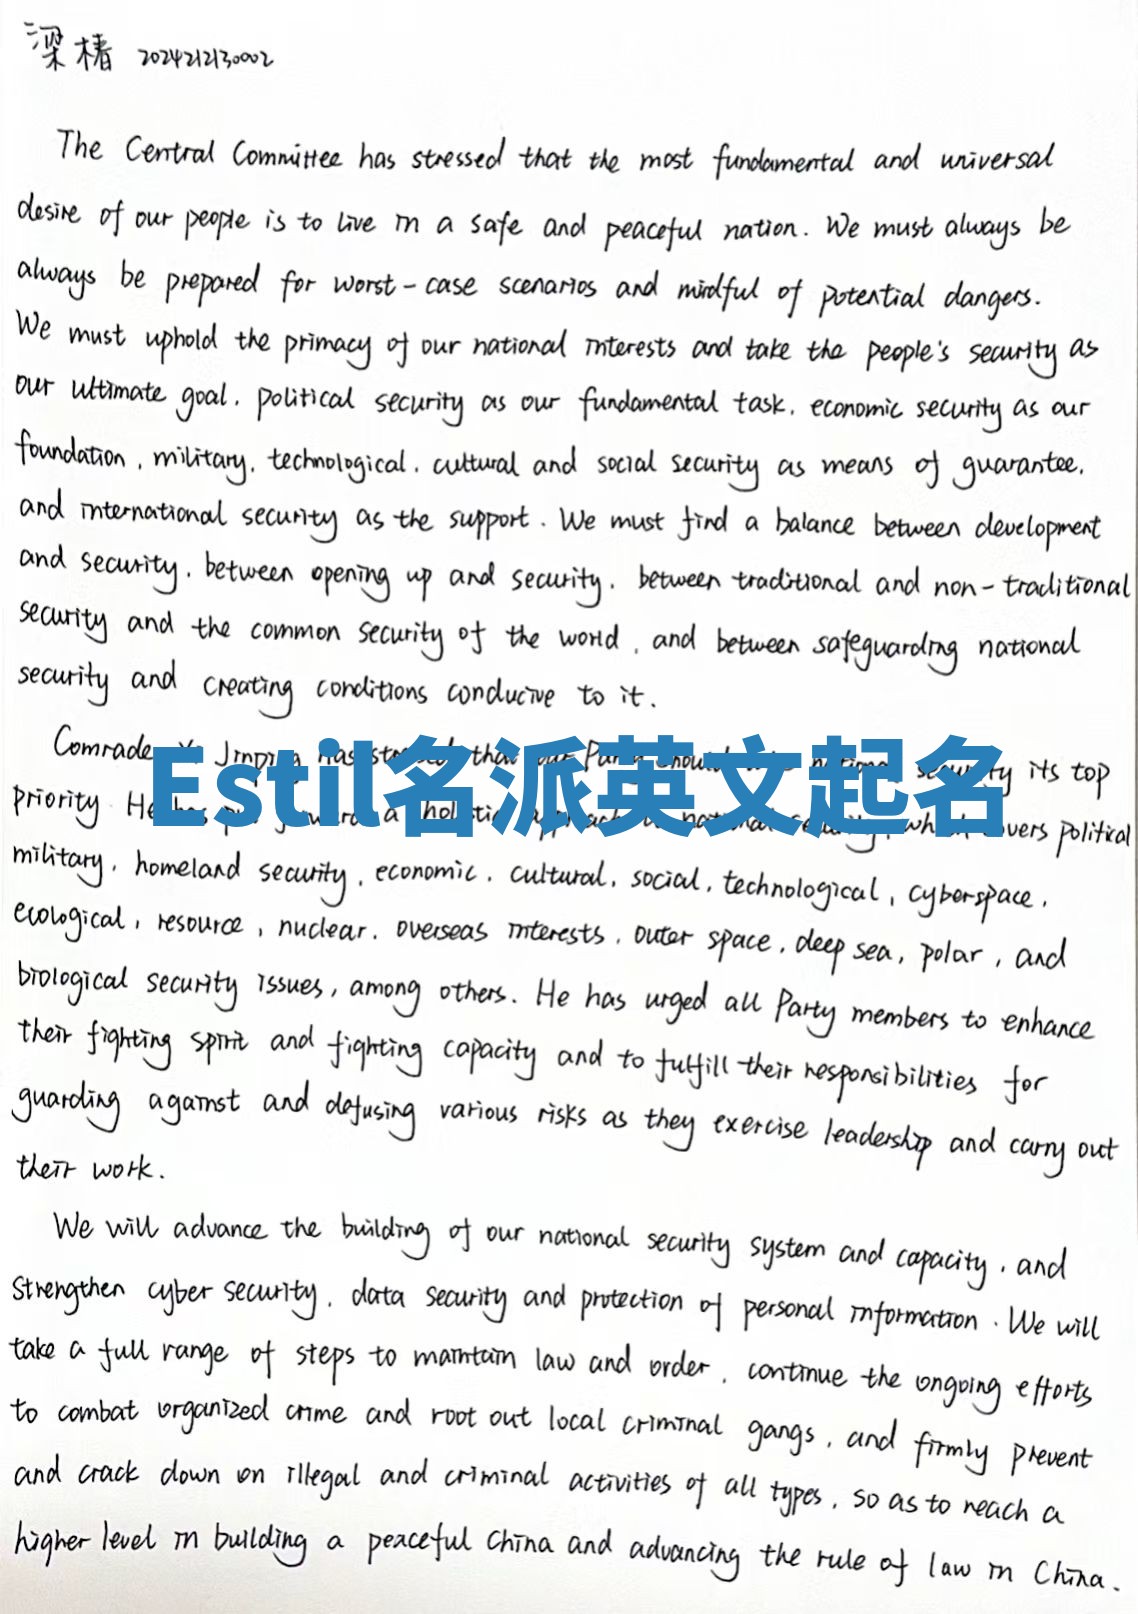 梁椿 2024212130002
The Central Committee has stressed that the most fundamental and universal
desire of our people is to live in a safe and peaceful nation. We must always be
always be prepared for worst-case scenarios and mindful of potential dangers.
We must uphold the primacy of our national interests and take the people's security as
our ultimate goal, political security as our fundamental task, economic security as our
foundation, military, technological, cultural and social security as means of guarantee,
and international security as the support. We must find a balance between development
and security, between opening up and security, between traditional and non-traditional
security and the common security of the world, and between safeguarding national
security and creating conditions conducive to it.
Comrade Jinping has that our Party should national security its top
Estil名派英文起名
priority. He has a holistic approach national security, which covers political
military, homeland security, economic, cultural, social, technological, cyberspace,
ecological, resource, nuclear, overseas interests, outer space, deep sea, polar, and
biological security issues, among others. He has urged all Party members to enhance
their fighting spirit and fighting capacity and to fulfill their responsibilities for
guarding against and defusing various risks as they exercise leadership and carry out
their work.
We will advance the building of our national security system and capacity, and
strengthen cyber security, data security and protection of personal information. We will
take a full range of steps to maintain law and order, continue the ongoing efforts
to combat organized crime and root out local criminal gangs, and firmly prevent
and crack down on illegal and criminal activities of all types, so as to reach a
higher level in building a peaceful China and advancing the rule of law in China.